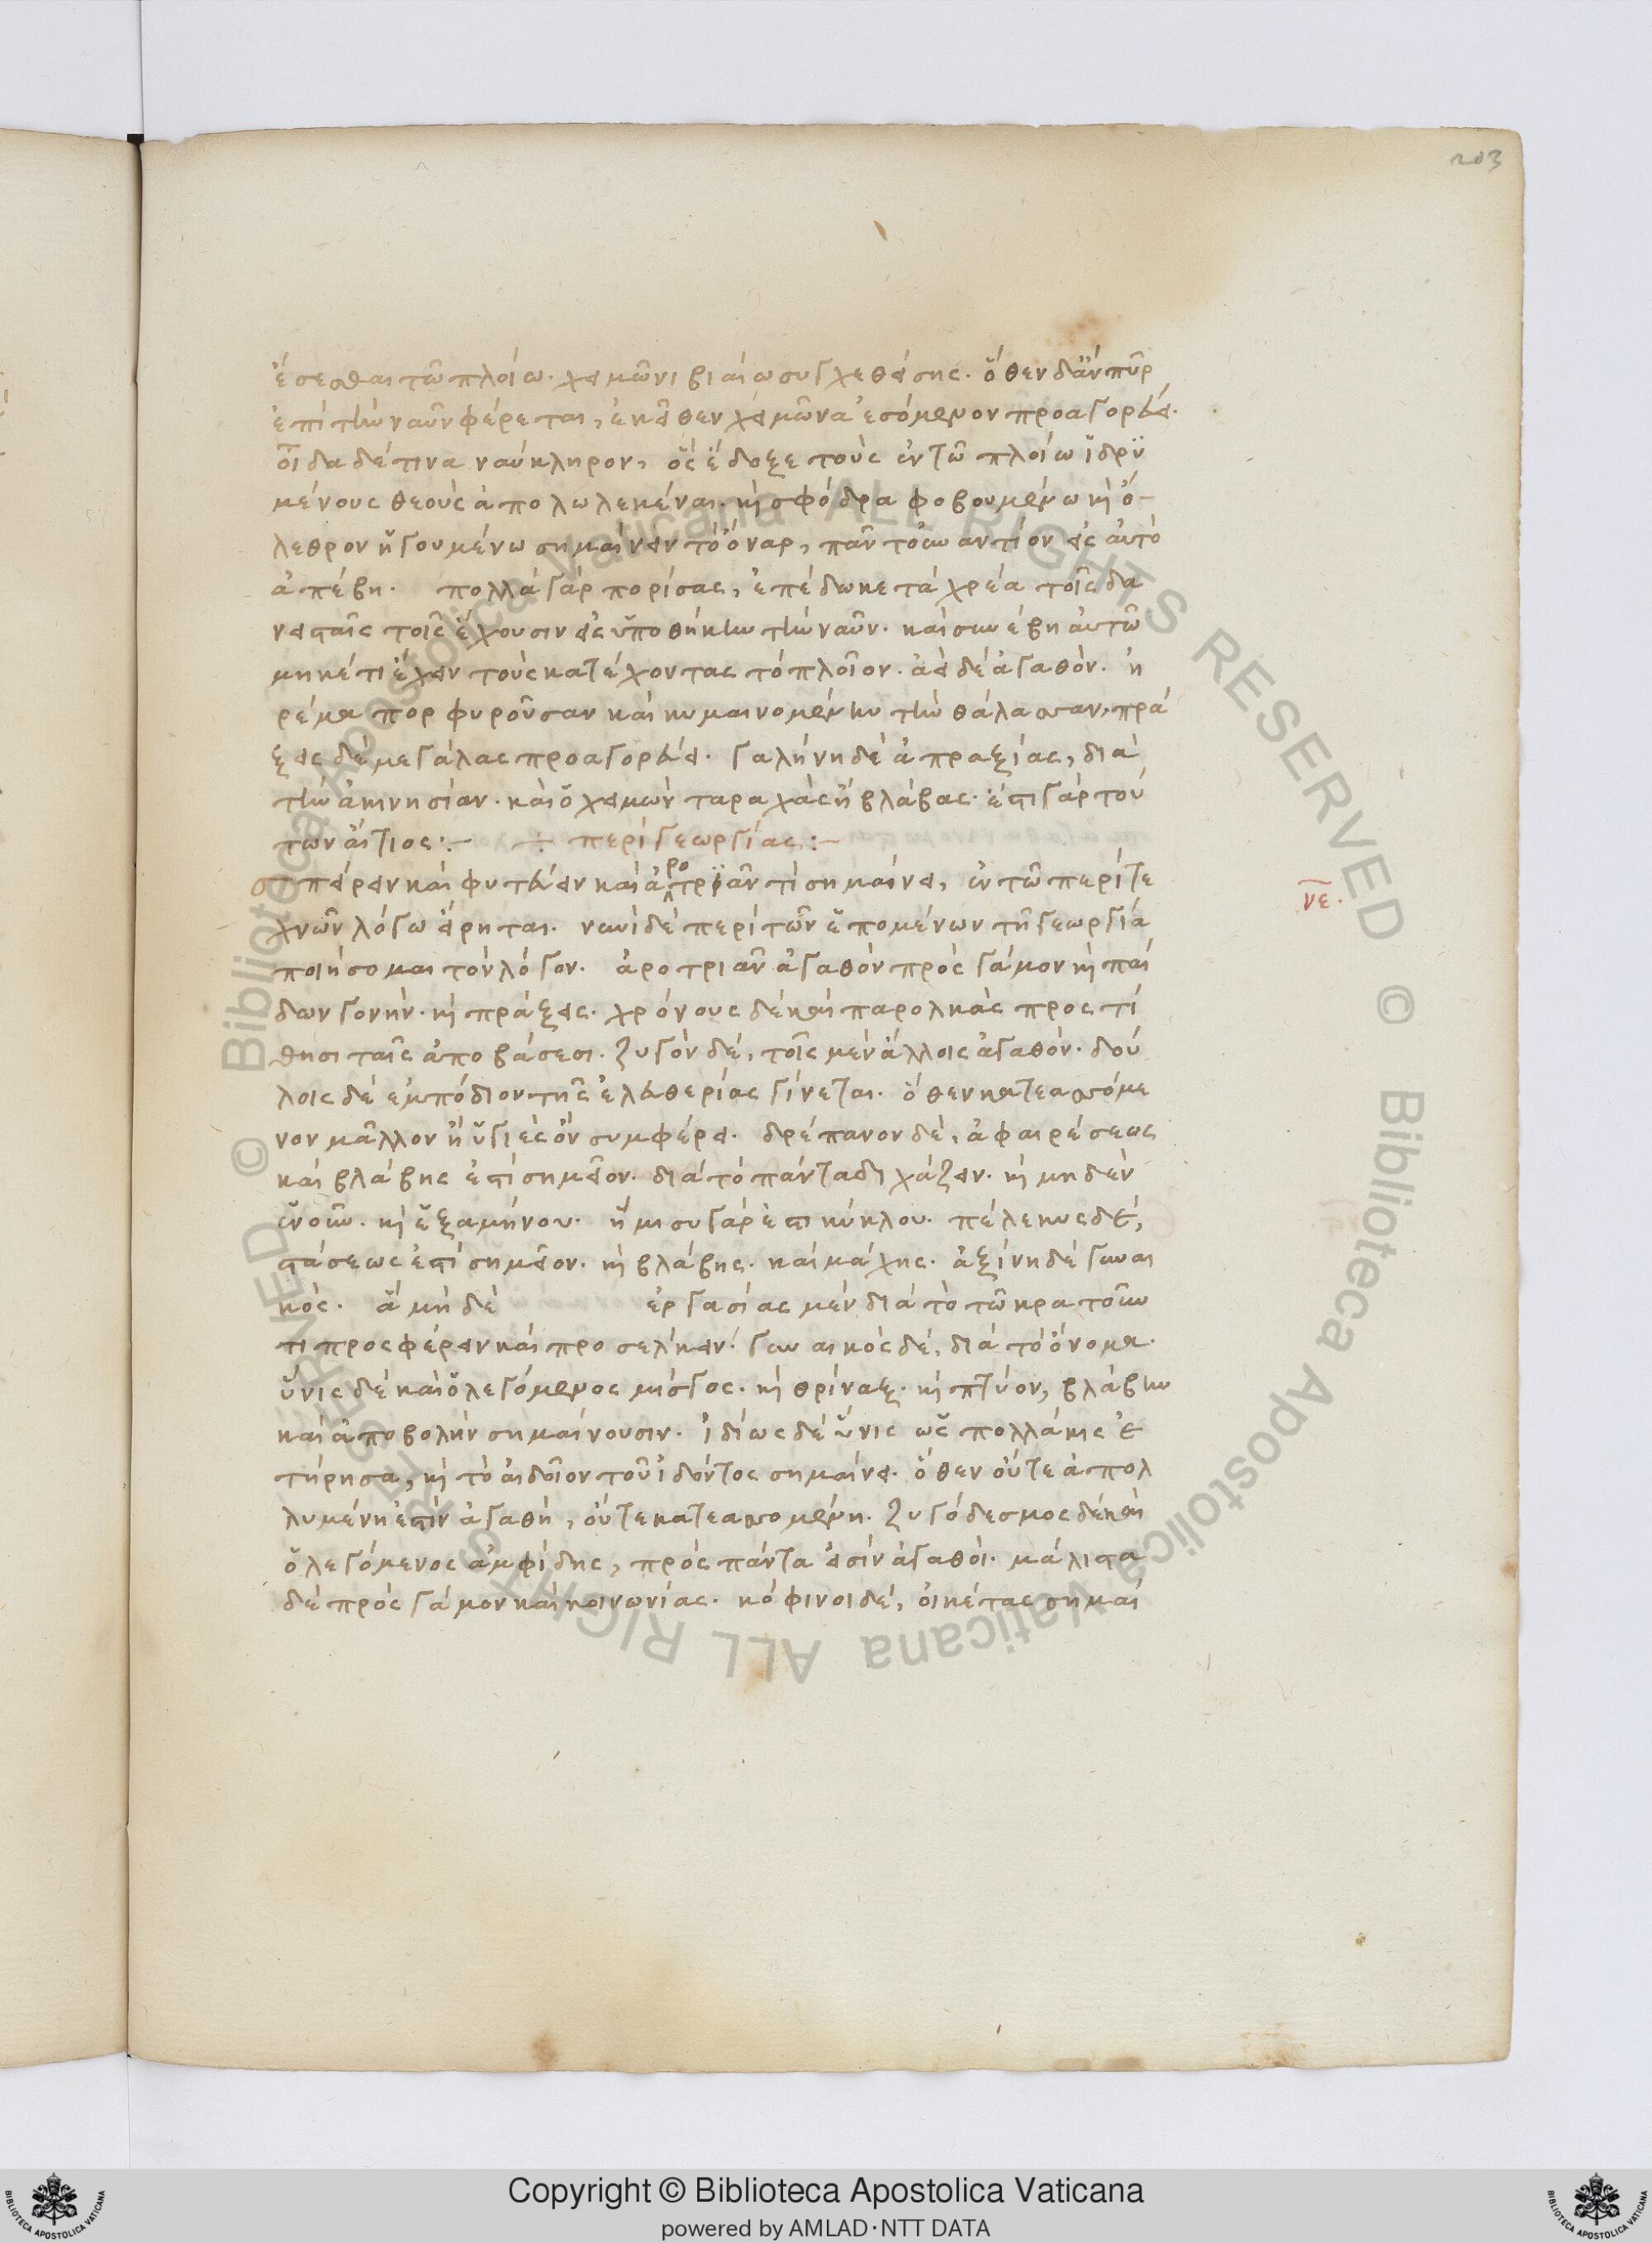 203
ἔσεσθαι τῶ πλοίω. χειμῶνι βιαίω συσχεθείσης. ὅθεν δ' ἂν πῦρ
ἐπὶ τὴν ναῦν φέρεται, ἐκεῖθεν χειμῶνα ἐσόμενον προαγορεύει.
οἶδα δέ τινα ναύκληρον, ὃς ἔδοξε τοὺς ἐν τῶ πλοίω ἱδρυ
μένους θεοὺς ἀπολωλεκέναι. καὶ σφόδρα φοβουμένω καὶ ὄ-
λεθρον ἡγουμένω σημαίνειν τὸ ὄναρ, πᾶν τοὐναντίον εἰς αὐτὸ
ἀπέβη. πολλὰ γὰρ πορίσας, ἐπέδωκε τὰ χρέα τοῖς δα
νεισταῖς τοῖς ἔχουσιν εἰς ὑποθήκην τὴν ναῦν. καὶ συνέβη αὐτῶ
μηκέτι ἔχειν τοὺς κατέχοντας τὸ πλοῖον. ἀεὶ δὲ ἀγαθὸν. ἠ
ρέμα πορφυροῦσαν καὶ κυμαινομένην τὴν θάλασσαν, πρά
ξεις δὲ μεγάλας προαγορεύει. γαλήνη δὲ ἀπραξίας, διὰ
τὴν ἀκινησίαν. καὶ ὁ χειμὼν ταραχὰς ἢ βλάβας. ἔστι γὰρ τού
των αἴτιος:- ÷ περὶ γεωργίας:-
σπείρειν καὶ φυτεύειν καὶ ἀροτριᾶν τί σημαίνει, ἐν τῶ περὶ τε
χνῶν λόγω εἴρηται. νυνὶ δὲ περὶ τῶν ἑπομένων τῆ γεωργία
ποιήσομαι τὸν λόγον. ἀροτριᾶν ἀγαθὸν πρὸς γάμον καὶ παί
δων γονὴν. καὶ πράξεις. χρόνους δὲ καὶ παρολκὰς προς τί
θησι ταῖς ἀποβάσεσι. ζυγὸν δὲ, τοῖς μὲν ἄλλοις ἀγαθὸν. δού
λοις δὲ ἐμπόδιον τῆς ἐλευθερίας γίνεται. ὅθεν κατεασσόμε
νον μᾶλλον ἢ ὑγιὲς ὂν συμφέρει. δρέπανον δὲ, ἀφαιρέσεως
καὶ βλάβης ἐστὶ σημεῖον. διὰ τὸ πάντα διχάζειν. καὶ μηδὲν
ἑνοῦν. καὶ ἑξαμήνου. ἥμισυ γάρ ἐστι κύκλου. πέλεκυς δὲ,
στάσεως ἐστὶ σημεῖον. καὶ βλάβης. καὶ μάχης. ἀξίνη δὲ γυναι
κὸς. ἄμη δὲ ἐργασίας μὲν διὰ τὸ τῶ κρατοῦν
τι προσφέρειν καὶ προσελκειν. γυναικὸς δὲ, διὰ τὸ ὄνομα.
ὕνις δὲ καὶ ὁ λεγόμενος μίσγος. καὶ θρίναξ. καὶ πτύον, βλάβην
καὶ ἀποβολὴν σημαίνουσιν. ἰδίως δὲ ὕνις ὡς πολλάκις ἐ
τήρησα, καὶ τὸ αἰδοῖον τοῦ ἰδόντος σημαίνει. ὅθεν οὔτε ἀπολ
λυμένη ἐστὶν ἀγαθὴ, οὔτε κατεασσομένη. ζυγόδεσμος δὲ καὶ
ὁ λεγόμενος ἀμφίδης, πρὸς πάντα εἰσὶν ἀγαθοὶ. μάλιστα
δὲ πρὸς γάμον καὶ κοινωνίας. κόφινοι δὲ, οἰκέτας σημαί
νε.